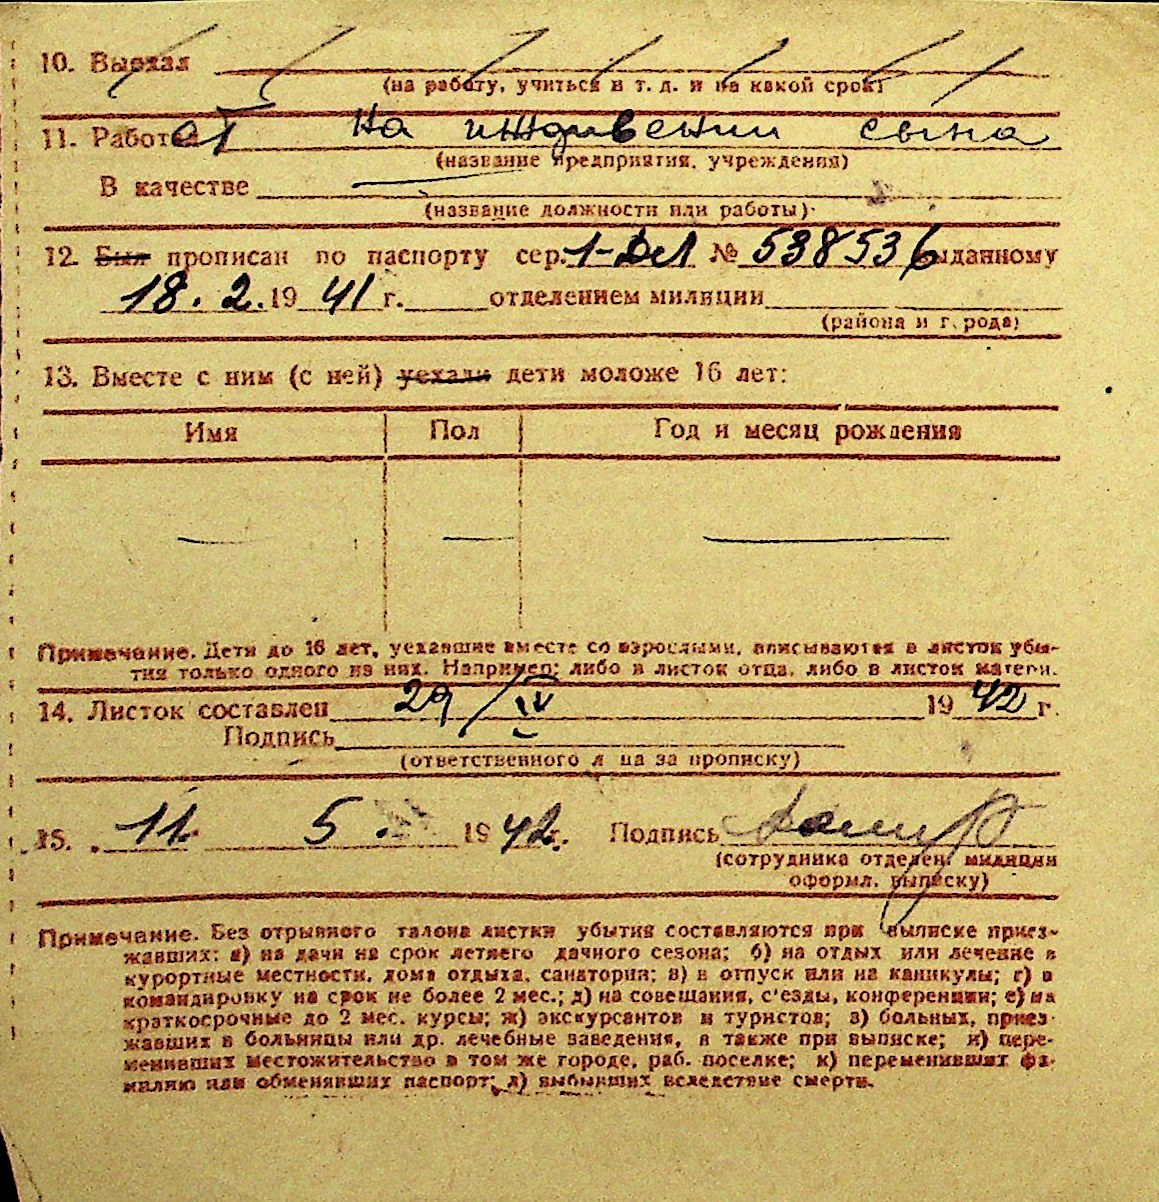 10. Выехал
(на работу, учиться и т. д. и на какой срок)
11. Работает на иждивении сына
(название предприятия, учреждения)
В качестве
(название должности или работы)
12. Был прописан по паспорту сер. № 538536 выданному
18. 2. 1941 г. отделением милиции
(района и города)
13. Вместе с ним (с ней) уехали дети моложе 16 лет:
Имя Пол Год и месяц рождения
Примечание. Дети до 16 лет, уехавшие вместе со взрослыми, вписываются в листок убы-
тия только одного из них. Например: либо в листок отца, либо в листок матери.
14. Листок составлен 29/IV 1942 г.
Подпись
(ответственного лица за прописку)
15. 11 5. 1942 г. Подпись
(сотрудника отделен. милиции
оформл. выписку)
Примечание. Без отрывного талона листки убытия составляются при выписке приез-
жавших: а) на дачи на срок летнего дачного сезона; б) на отдых или лечение в
курортные местности, дома отдыха, санатории; в) в отпуск или на каникулы; г) в
командировку на срок не более 2 мес.; д) на совещания, с'езды, конференции; е) на
краткосрочные до 2 мес. курсы; ж) экскурсантов и туристов; з) больных, приез-
жавших в больницы или др. лечебные заведения, а также при выписке; и) пере-
менивших местожительство в том же городе, раб. поселке; к) переменивших фа-
милию или обменявших паспорт; л) выбывших вследствие смерти.